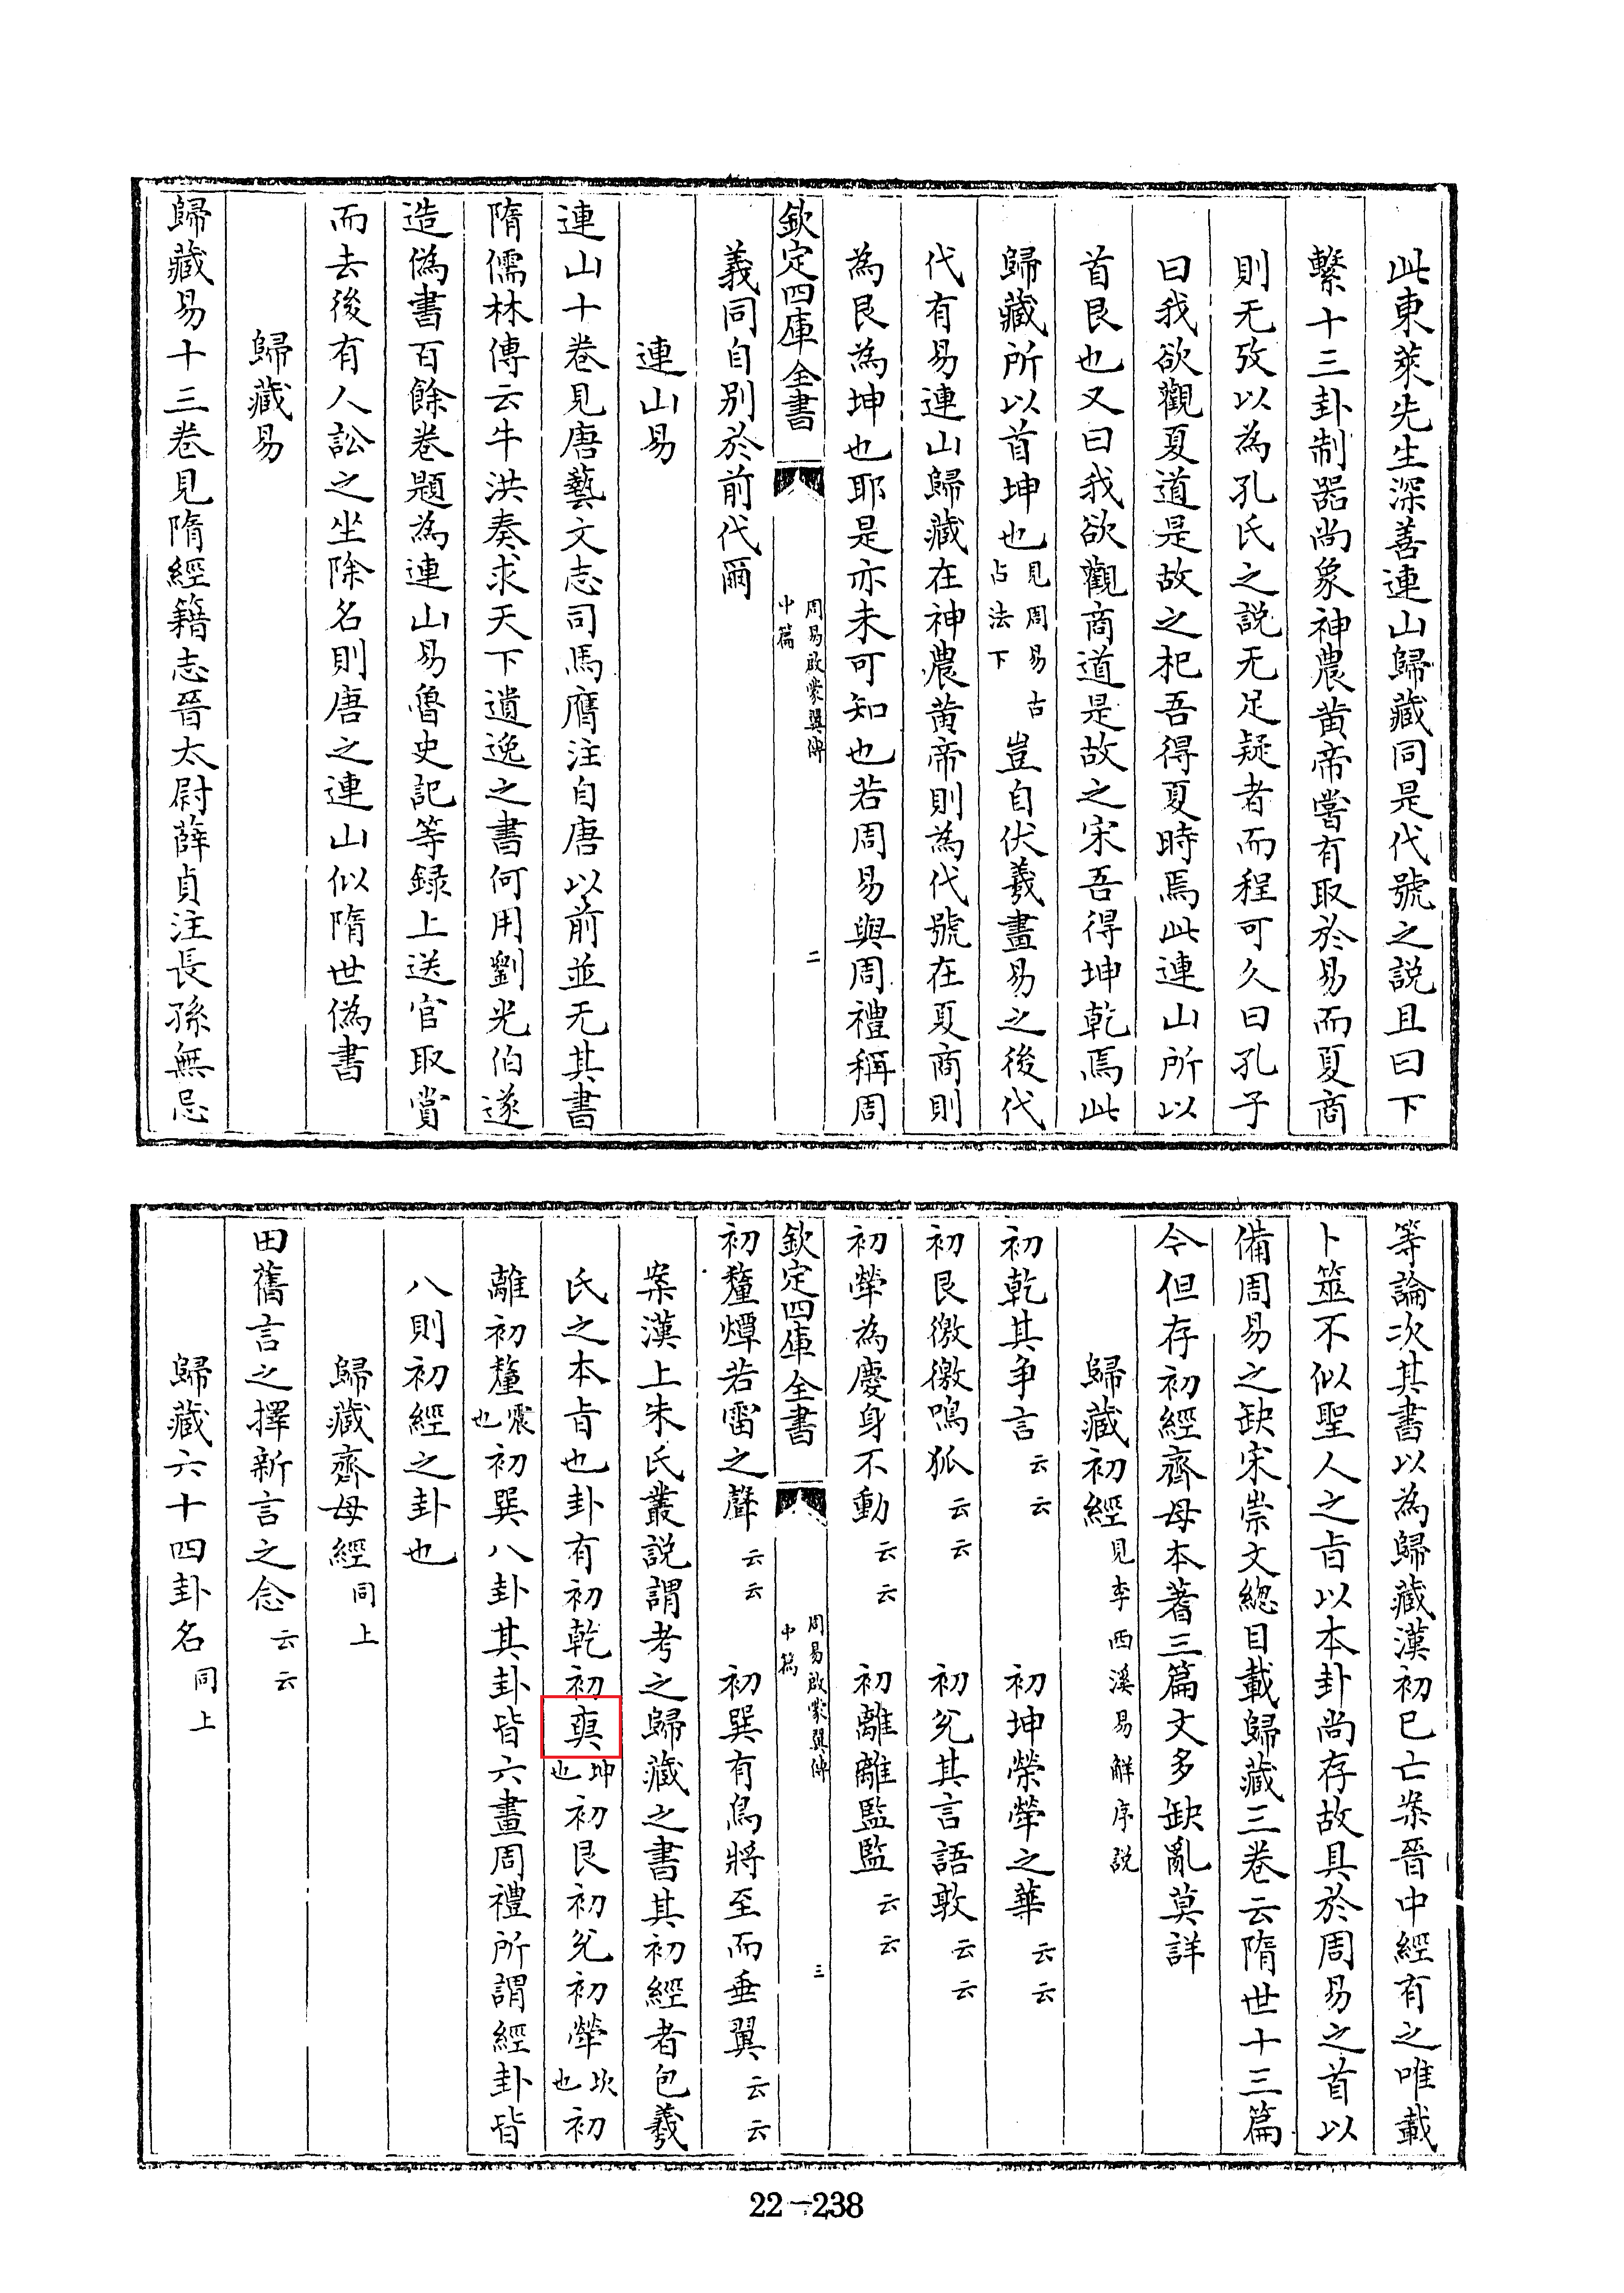 此東萊先生深善連山歸藏同是代號之説且曰下
繫十三卦制器尚象神農黄帝嘗有取於易而夏商
則无攷以為孔氏之説无足疑者而程可久曰孔子
曰我欲觀夏道是故之杞吾得夏時焉此連山所以
首艮也又曰我欲觀商道是故之宋吾得坤乾焉此
歸藏所以首坤也見周易古占法下豈自伏羲畫易之後代
代有易連山歸藏在神農黄帝則為代號在夏商則
為艮為坤也耶是亦未可知也若周易與周禮稱周
欽定四庫全書
周易啟蒙翼傳
中篇
二
義同自別於前代爾
連山易
連山十卷見唐藝文志司馬膺注自唐以前並无其書
隋儒林傳云牛洪奏求天下遺逸之書何用劉光伯遂
造偽書百餘卷題為連山易魯史記等録上送官取賞
而去後有人訟之坐除名則唐之連山似隋世偽書
歸藏易
歸藏易十三卷見隋經籍志晉太尉薛貞注長孫無忌
等論次其書以為歸藏漢初已亡案晉中經有之唯載
卜筮不似聖人之㫖以本卦尚存故具於周易之首以
備周易之缺宋崇文總目載歸藏三卷云隋世十三篇
今但存初經齊母本蓍三篇文多缺亂莫詳
歸藏初經見李西溪易解序説
初乾其争言云云　初坤榮犖之華云云
初艮徼徼鳴狐云云　初兊其言語敦云云
初犖為慶身不動云云　初離離監監云云
欽定四庫全書
周易啟蒙翼傳
中篇
三
初釐燀若雷之聲云云　初巽有鳥將至而垂翼云云
案漢上朱氏叢説謂考之歸藏之書其初經者包羲
氏之本㫖也卦有初乾初坤也初艮初兊初犖坎也初
離初釐震也初巽八卦其卦皆六畫周禮所謂經卦皆
八則初經之卦也
歸藏齊母經同上
田舊言之擇新言之念云云
歸藏六十四卦名同上
22-238